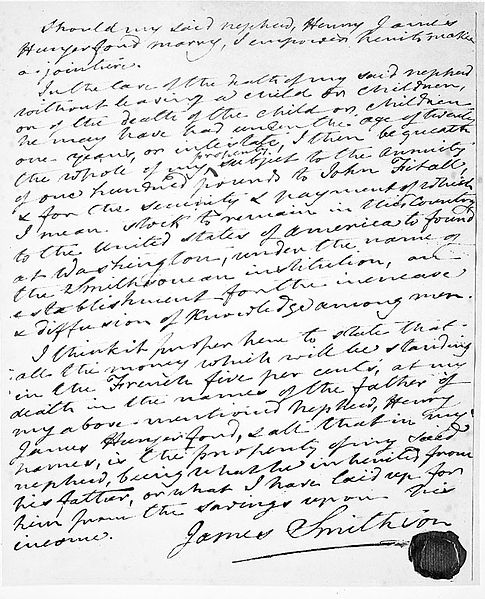 Should my said nephew, Henry James
Hungerford marry, I empower him to make
a jointure.
In the case of the death of my said nephew
without leaving a child or children,
or of the death of the child or children
he may have had under the age of twenty
one years, or intestate, I then bequeath
the whole of my property subject to the annuity
of one hundred pounds to John Fitall,
& for the security & payment of which
I mean stock to remain in this country
to the United States of America to found
at Washington, under the name of
the Smithsonian institution, an
establishment for the increase
& diffusion of Knowledge among men.
I think it proper here to state that
all the money which will be standing
in the French five per cents, at my
death in the names of the father of
my above mentioned nephew, Henry
James Hungerford, & all that in my
names, is the property of my said
nephew, being what he inherited from
his father, or what I have laid up for
him from the savings upon his
income.
James Smithson